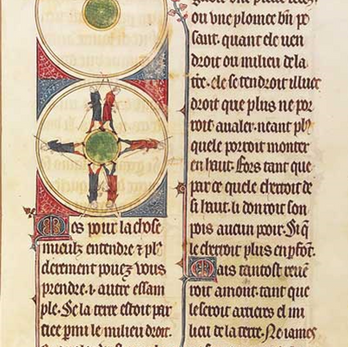 es pour la chose
mieulz entendre & pl9
clerement pouez vous
prendre .i. autre essam
ple. Se la terre estoit par
tiee parmi le milieu droit.
ou vne plomee bñ pe
sant. quant ele uen
droit ou milieu de la
tre. ele se tendroit illuec
droit que plus ne por
roit aualer. neant pl9
quele porroit monter
en haut. Fors tant que
par ce quele cherroit de
si haut. li donroit son
pois aucun pooir. Si q̃
le cherroit plus en p̃font.
Mais tantost reue
roit amont. tant que
le seroit arrieres el mi
lieu de la terre. Ne iames